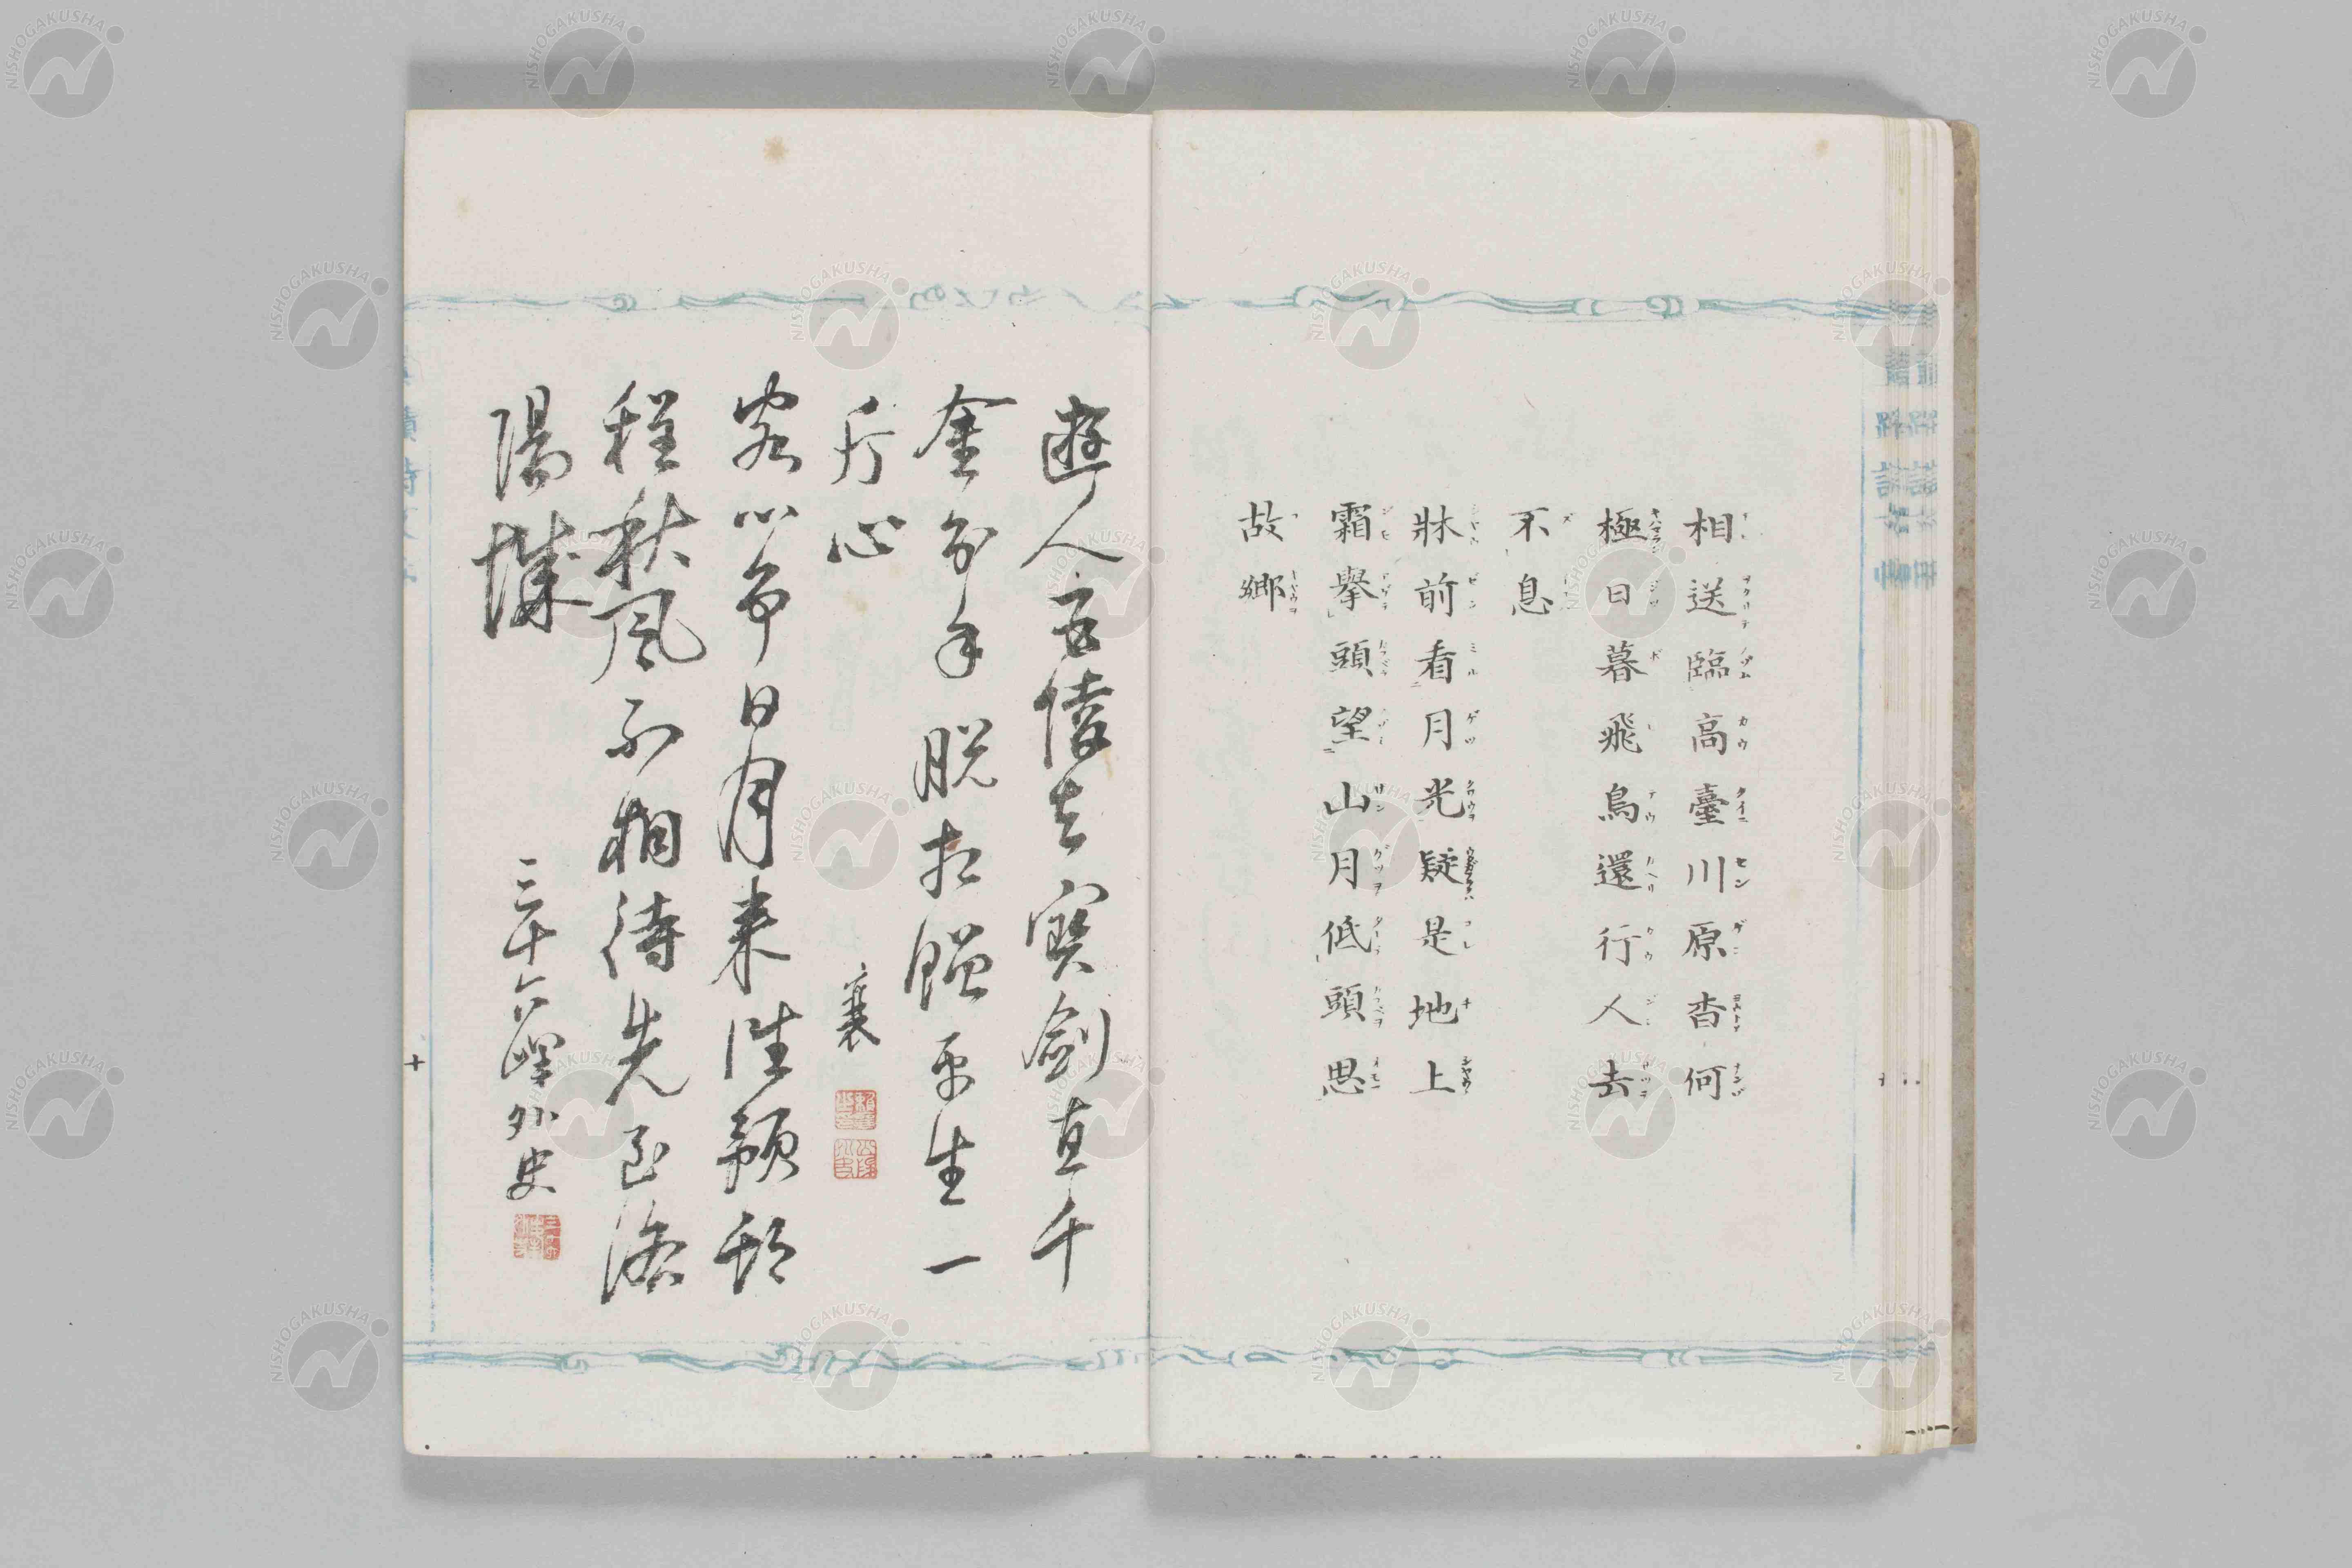 相送臨高臺川原杳何
極日暮飛鳥還行人去
不息
牀前看月光疑是地上
霜擧頭望山月低頭思
故郷
遊人五陵去寶劍直千
金分手脱相贈平生一
片心
襄
客心爭日月來往預期
程秋風不相待先至洛
陽城
三十六峰外史